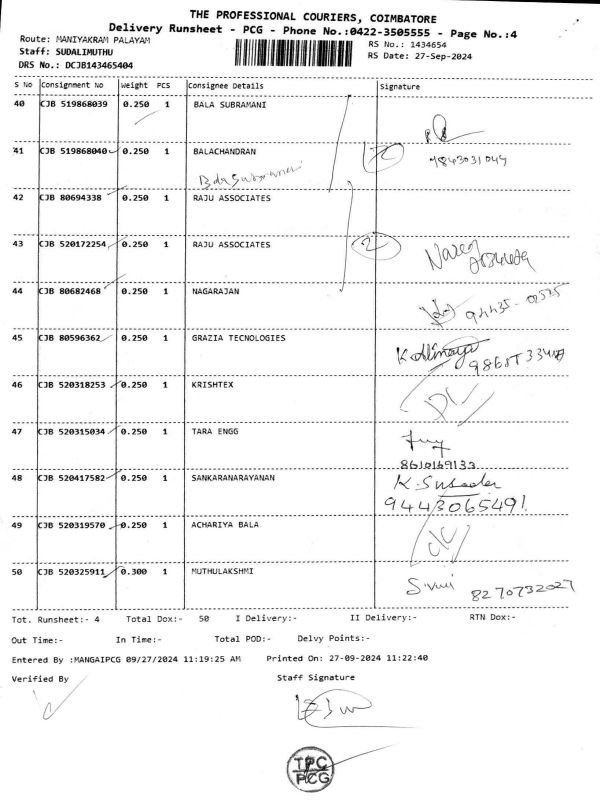 THE PROFESSIONAL COURIERS, COIMBATORE
Delivery Runsheet - PCG - Phone No.:0422-3505555 - Page No.:4
Route: MANIYAKRAM PALAYAM
RS No.: 1434654
Staff: SUDALIMUTHU
RS Date: 27-Sep-2024
DRS No.: DCJB143465404
S No Consignment No Weight PCS Consignee Details Signature
40 CJB 519868039 0.250 1 BALA SUBRAMANI
41 CJB 519868040 0.250 1 BALACHANDRAN
9843031044
42 CJB 80694338 0.250 1 RAJU ASSOCIATES
43 CJB 520172254 0.250 1 RAJU ASSOCIATES
2
44 CJB 80682468 0.250 1 NAGARAJAN
45 CJB 80596362 0.250 1 GRAZIA TECNOLOGIES
46 CJB 520318253 0.250 1 KRISHTEX
D/L
47 CJB 520315034 0.250 1 TARA ENGG
8610169133
48 CJB 520417582 0.250 1 SANKARANARAYANAN
9443065491
49 CJB 520319570 0.250 1 ACHARIYA BALA
C/C
50 CJB 520325911 0.300 1 MUTHULAKSHMI
8270732027
Tot. Runsheet:- 4 Total Dox:- 50 I Delivery:- II Delivery:- RTN Dox:-
Out Time:- In Time:- Total POD:- Delvy Points:-
Entered By :MANGAIPCG 09/27/2024 11:19:25 AM Printed On: 27-09-2024 11:22:40
Verified By Staff Signature
TPC
PCG